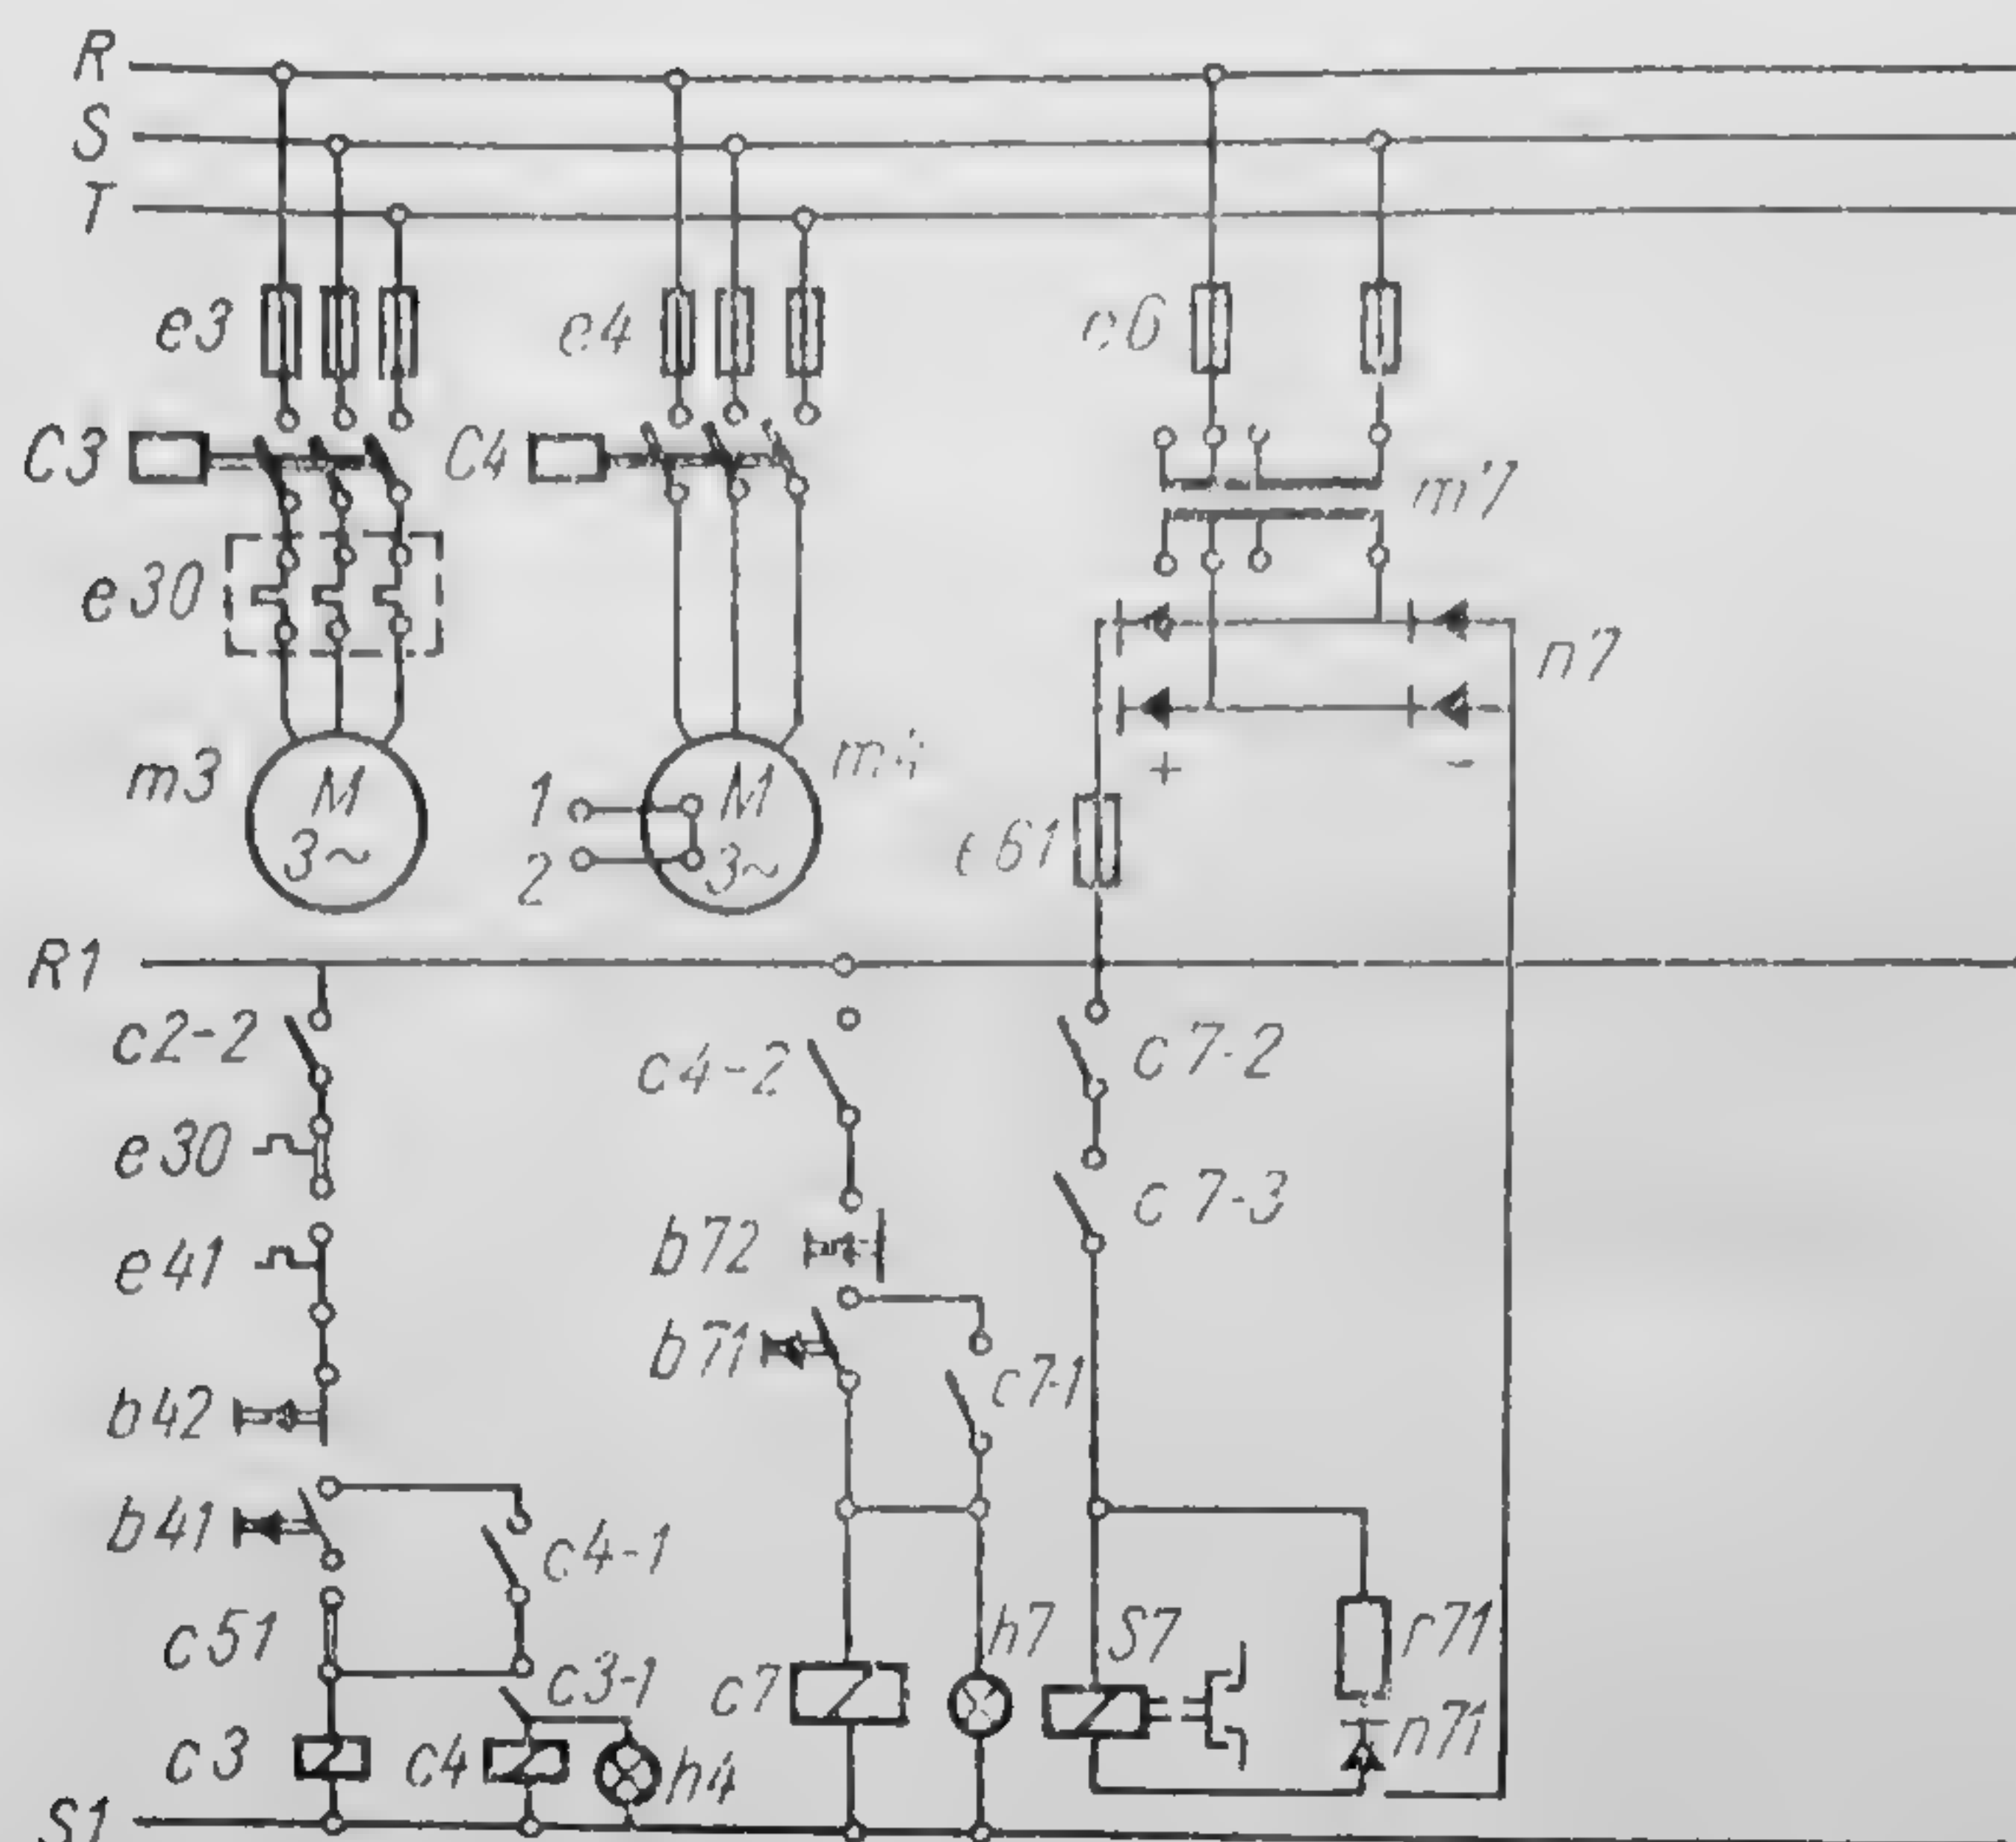 R
S
T
e3
e4
e6
C3
C4
m7
e30
n7
m3
M
3~
1
2
M
3~
m4
+
-
e61
R1
c2-2
c4-2
c7-2
e30
c7-3
e41
b72
b71
c7-1
b42
b41
c4-1
c51
c3-1
h7
S7
r71
c7
n71
c3
c4
h4
S1